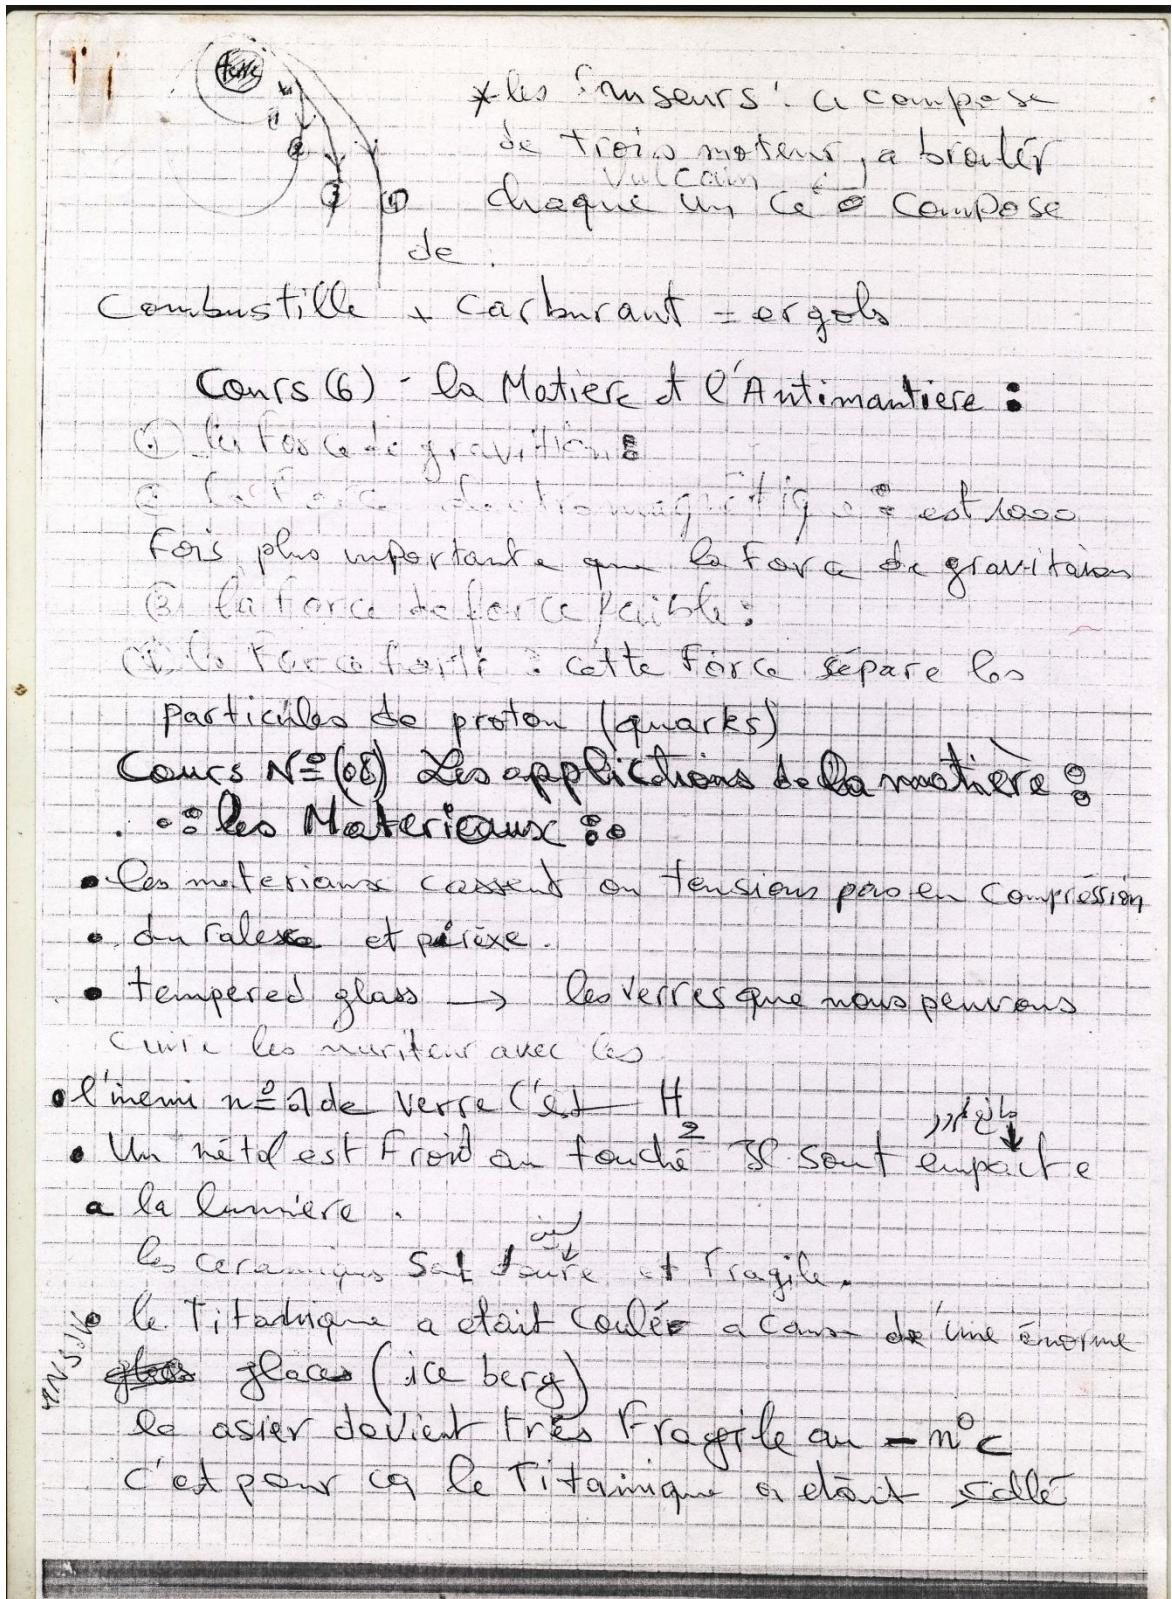 terre
1
2
3
4
* les fuseurs : a compose
de trois moteur, a
Vulcain
chaque un ce compose
de
Combustille + carburant = ergols
Cours (6) - la Matiere et l'Antimantiere :
① la Force de gravitation :
② la Force electromagnétique : est 1000
Fois plus importante que la Force de gravitaion
③ la Force de force faible :
④ la Force forte : cette Force sépare les
particules de proton (quarks)
Cours N° (08) Les applications de la matière :
les Materieaux :
• les materiaux cassent en tensions pas en compréssion
• duralexe et pirèxe.
• tempered glass → les verres que nous peuvons
cuire les avec les
• l'inemi n° 1 de verre c'est H2
مانع
• Un métal est Froid au touché Il sont empacte
a la lumière.
les ceramiques Sont et fragile.
• le Titanique a etait coulée a cause de une énorme
glaces (ice berg)
le asier devient très Fragile au - n°c
c'est pour ça le Titainique a etait